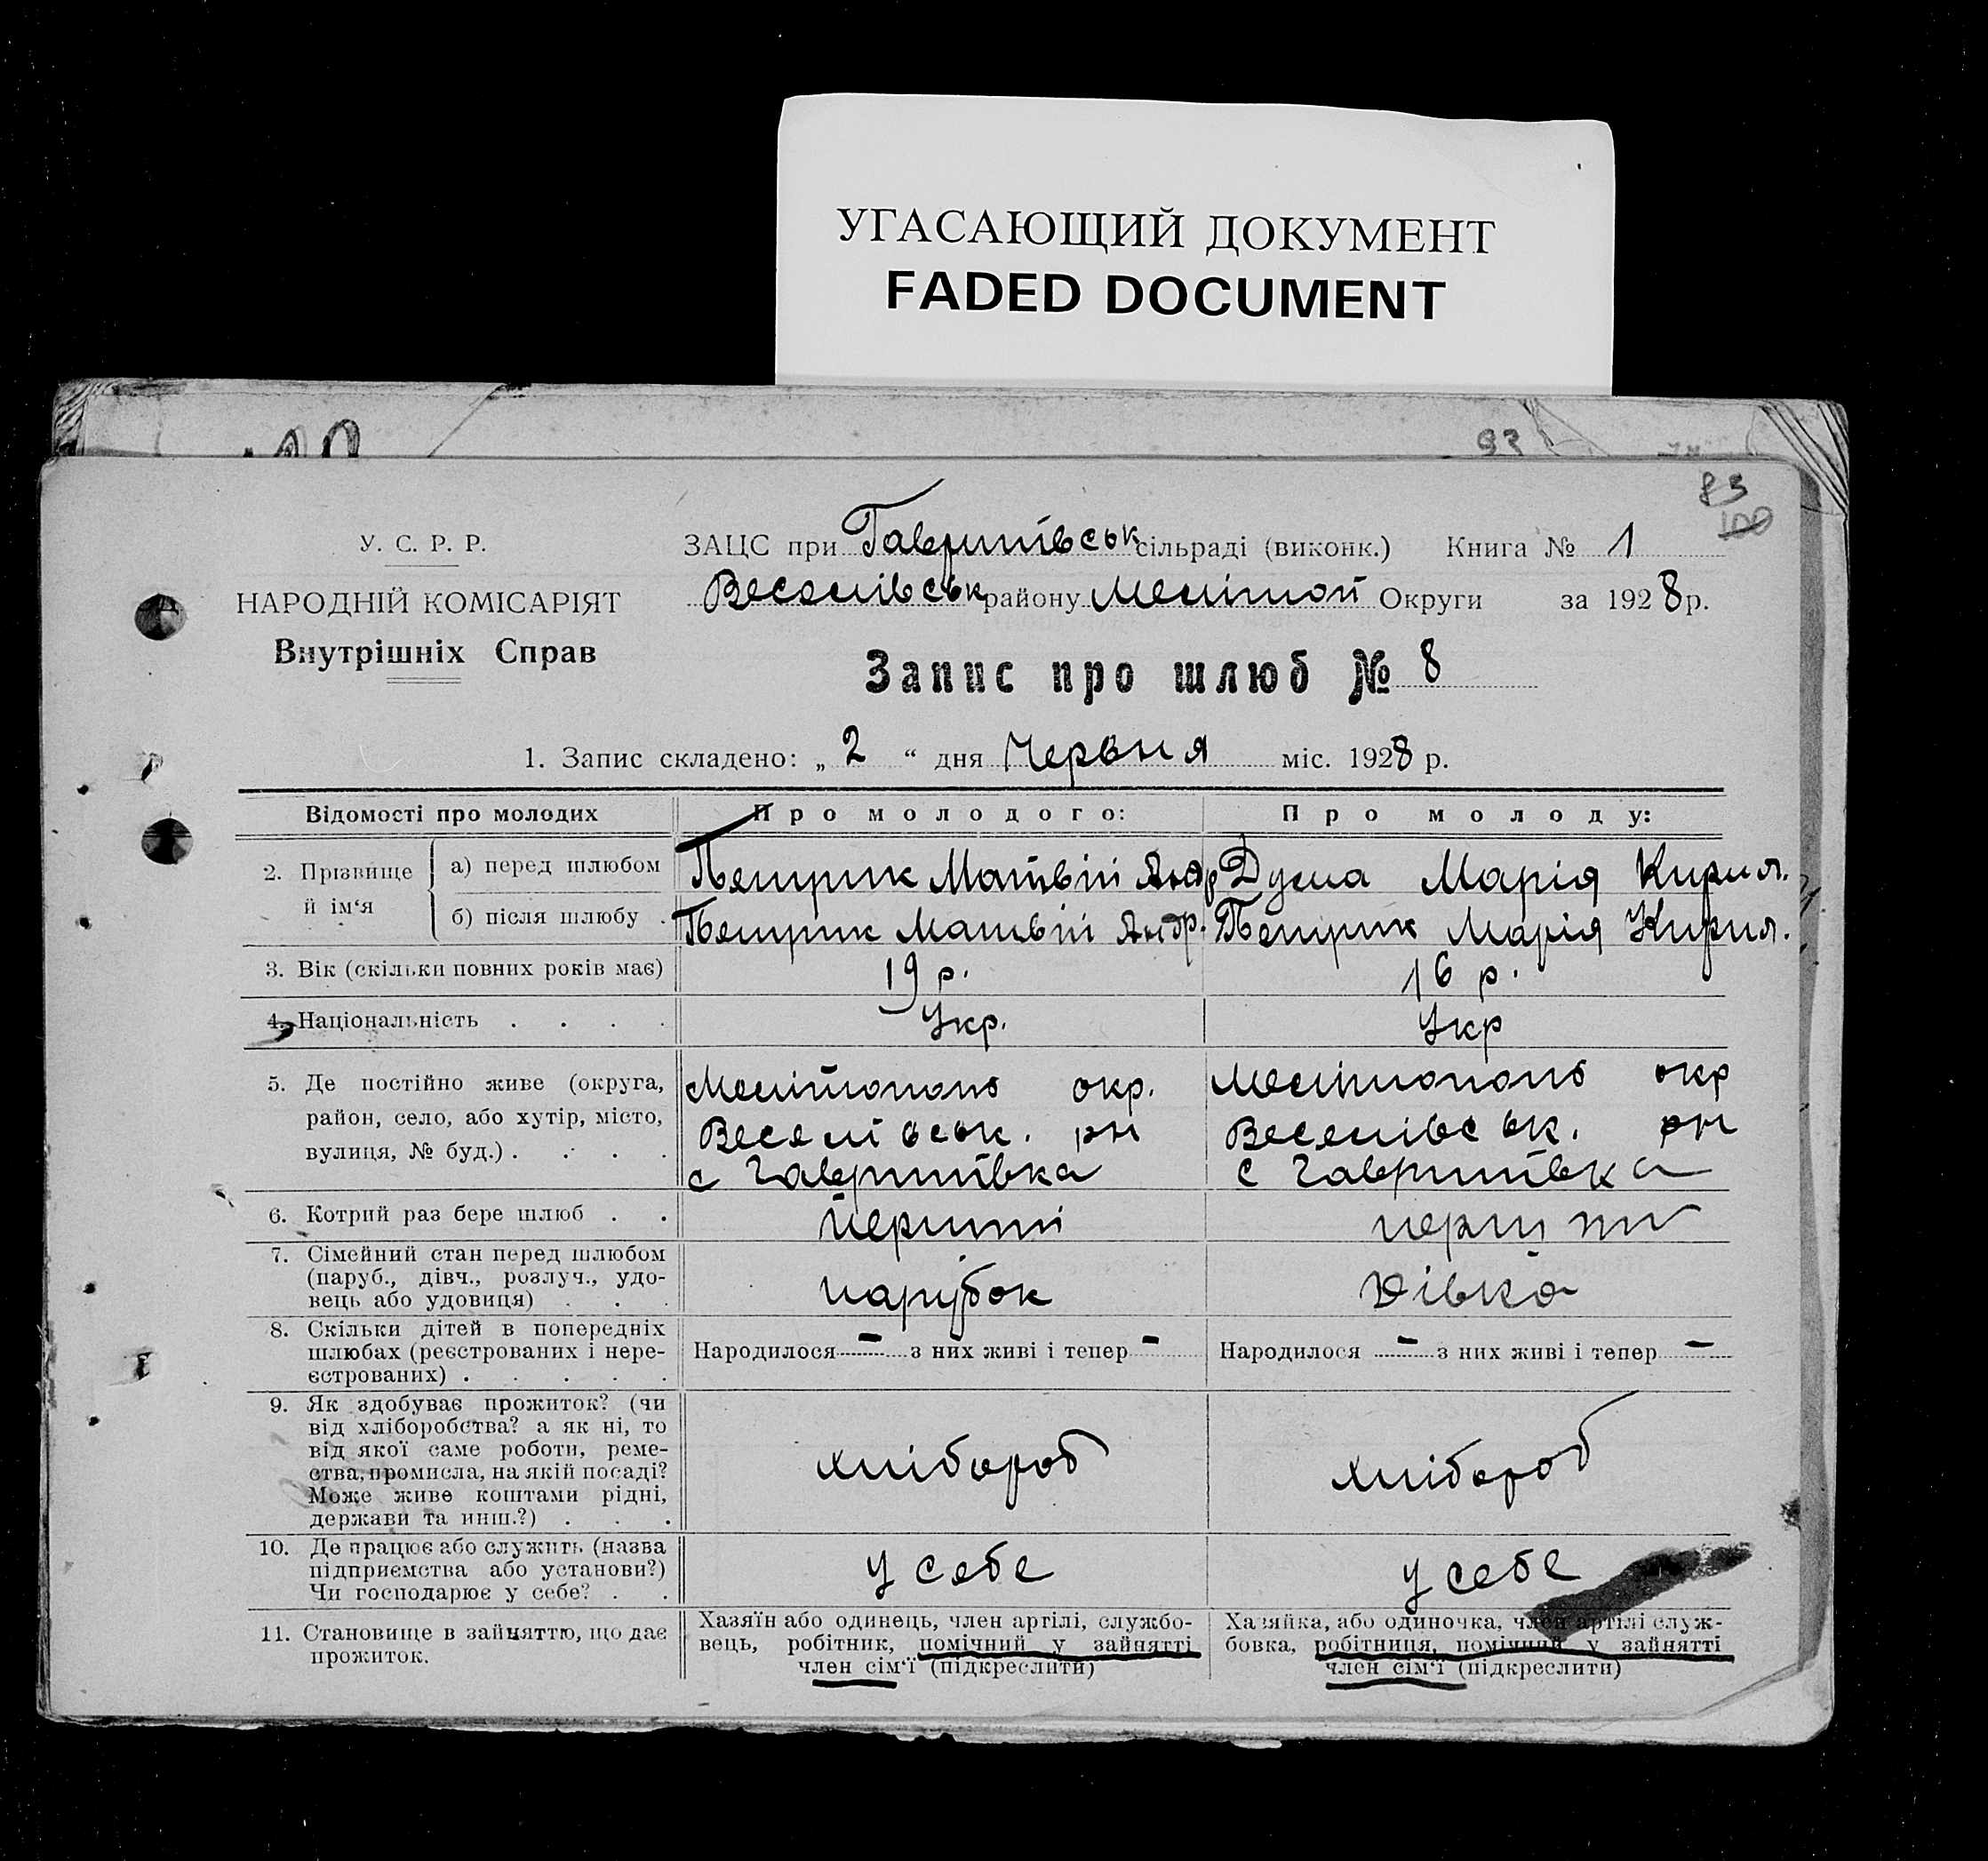 УГАСАЮЩИЙ ДОКУМЕНТ
FADED DOCUMENT
93
83
100
У. С. Р. Р.
НАРОДНІЙ КОМІСАРІЯТ
Внутрішніх Справ
ЗАЦС при Гавришівськ сільраді (виконк.) Книга № 1
Веселівськ району Мелітоп Округи за 1928 р.
Запис про шлюб № 8
1. Запис складено: „ 2 “ дня Червня міс. 1928 р.
Відомості про молодих Про молодого: Про молоду:
2. Прізвище й ім‘я
а) перед шлюбом Петрик Матвій Андр Дума Марія Кирил.
б) після шлюбу . Петрик Матвій Андр. Петрик Марія Кирил.
3. Вік (скільки повних років має) 19 р. 16 р.
4. Національність . . . . Укр. Укр
5. Де постійно живе (округа,
район, село, або хутір, місто,
вулиця, № буд.) . . . .
Мелітополь окр.
Веселівськ. рн
с Гавришівка
Мелітополь окр
Веселівськ. рн
с Гавришівка
6. Котрий раз бере шлюб . . перший перший
7. Сімейний стан перед шлюбом
(паруб., дівч., розлуч., удо-
вець або удовиця) . . .
парубок дівка
8. Скільки дітей в попередніх
шлюбах (реєстрованих і нере-
єстрованих) . . . . .
Народилося — з них живі і тепер —
Народилося — з них живі і тепер —
9. Як здобуває прожиток? (чи
від хліборобства? а як ні, то
від якої саме роботи, реме-
ства, промисла, на якій посаді?
Може живе коштами рідні,
держави та инш.?) . . .
хлібороб хлібороб
10. Де працює або служить (назва
підприємства або установи?)
Чи господарює у себе? . .
у себе у себе
11. Становище в зайняттю, що дає
прожиток.
Хазяїн або одинець, член артілі, службо-
вець, робітник, помічний у зайнятті
член сім‘ї (підкреслити)
Хазяйка, або одиночка, член артілі служ-
бовка, робітниця, помічний у зайнятті
член сім‘ї (підкреслити)